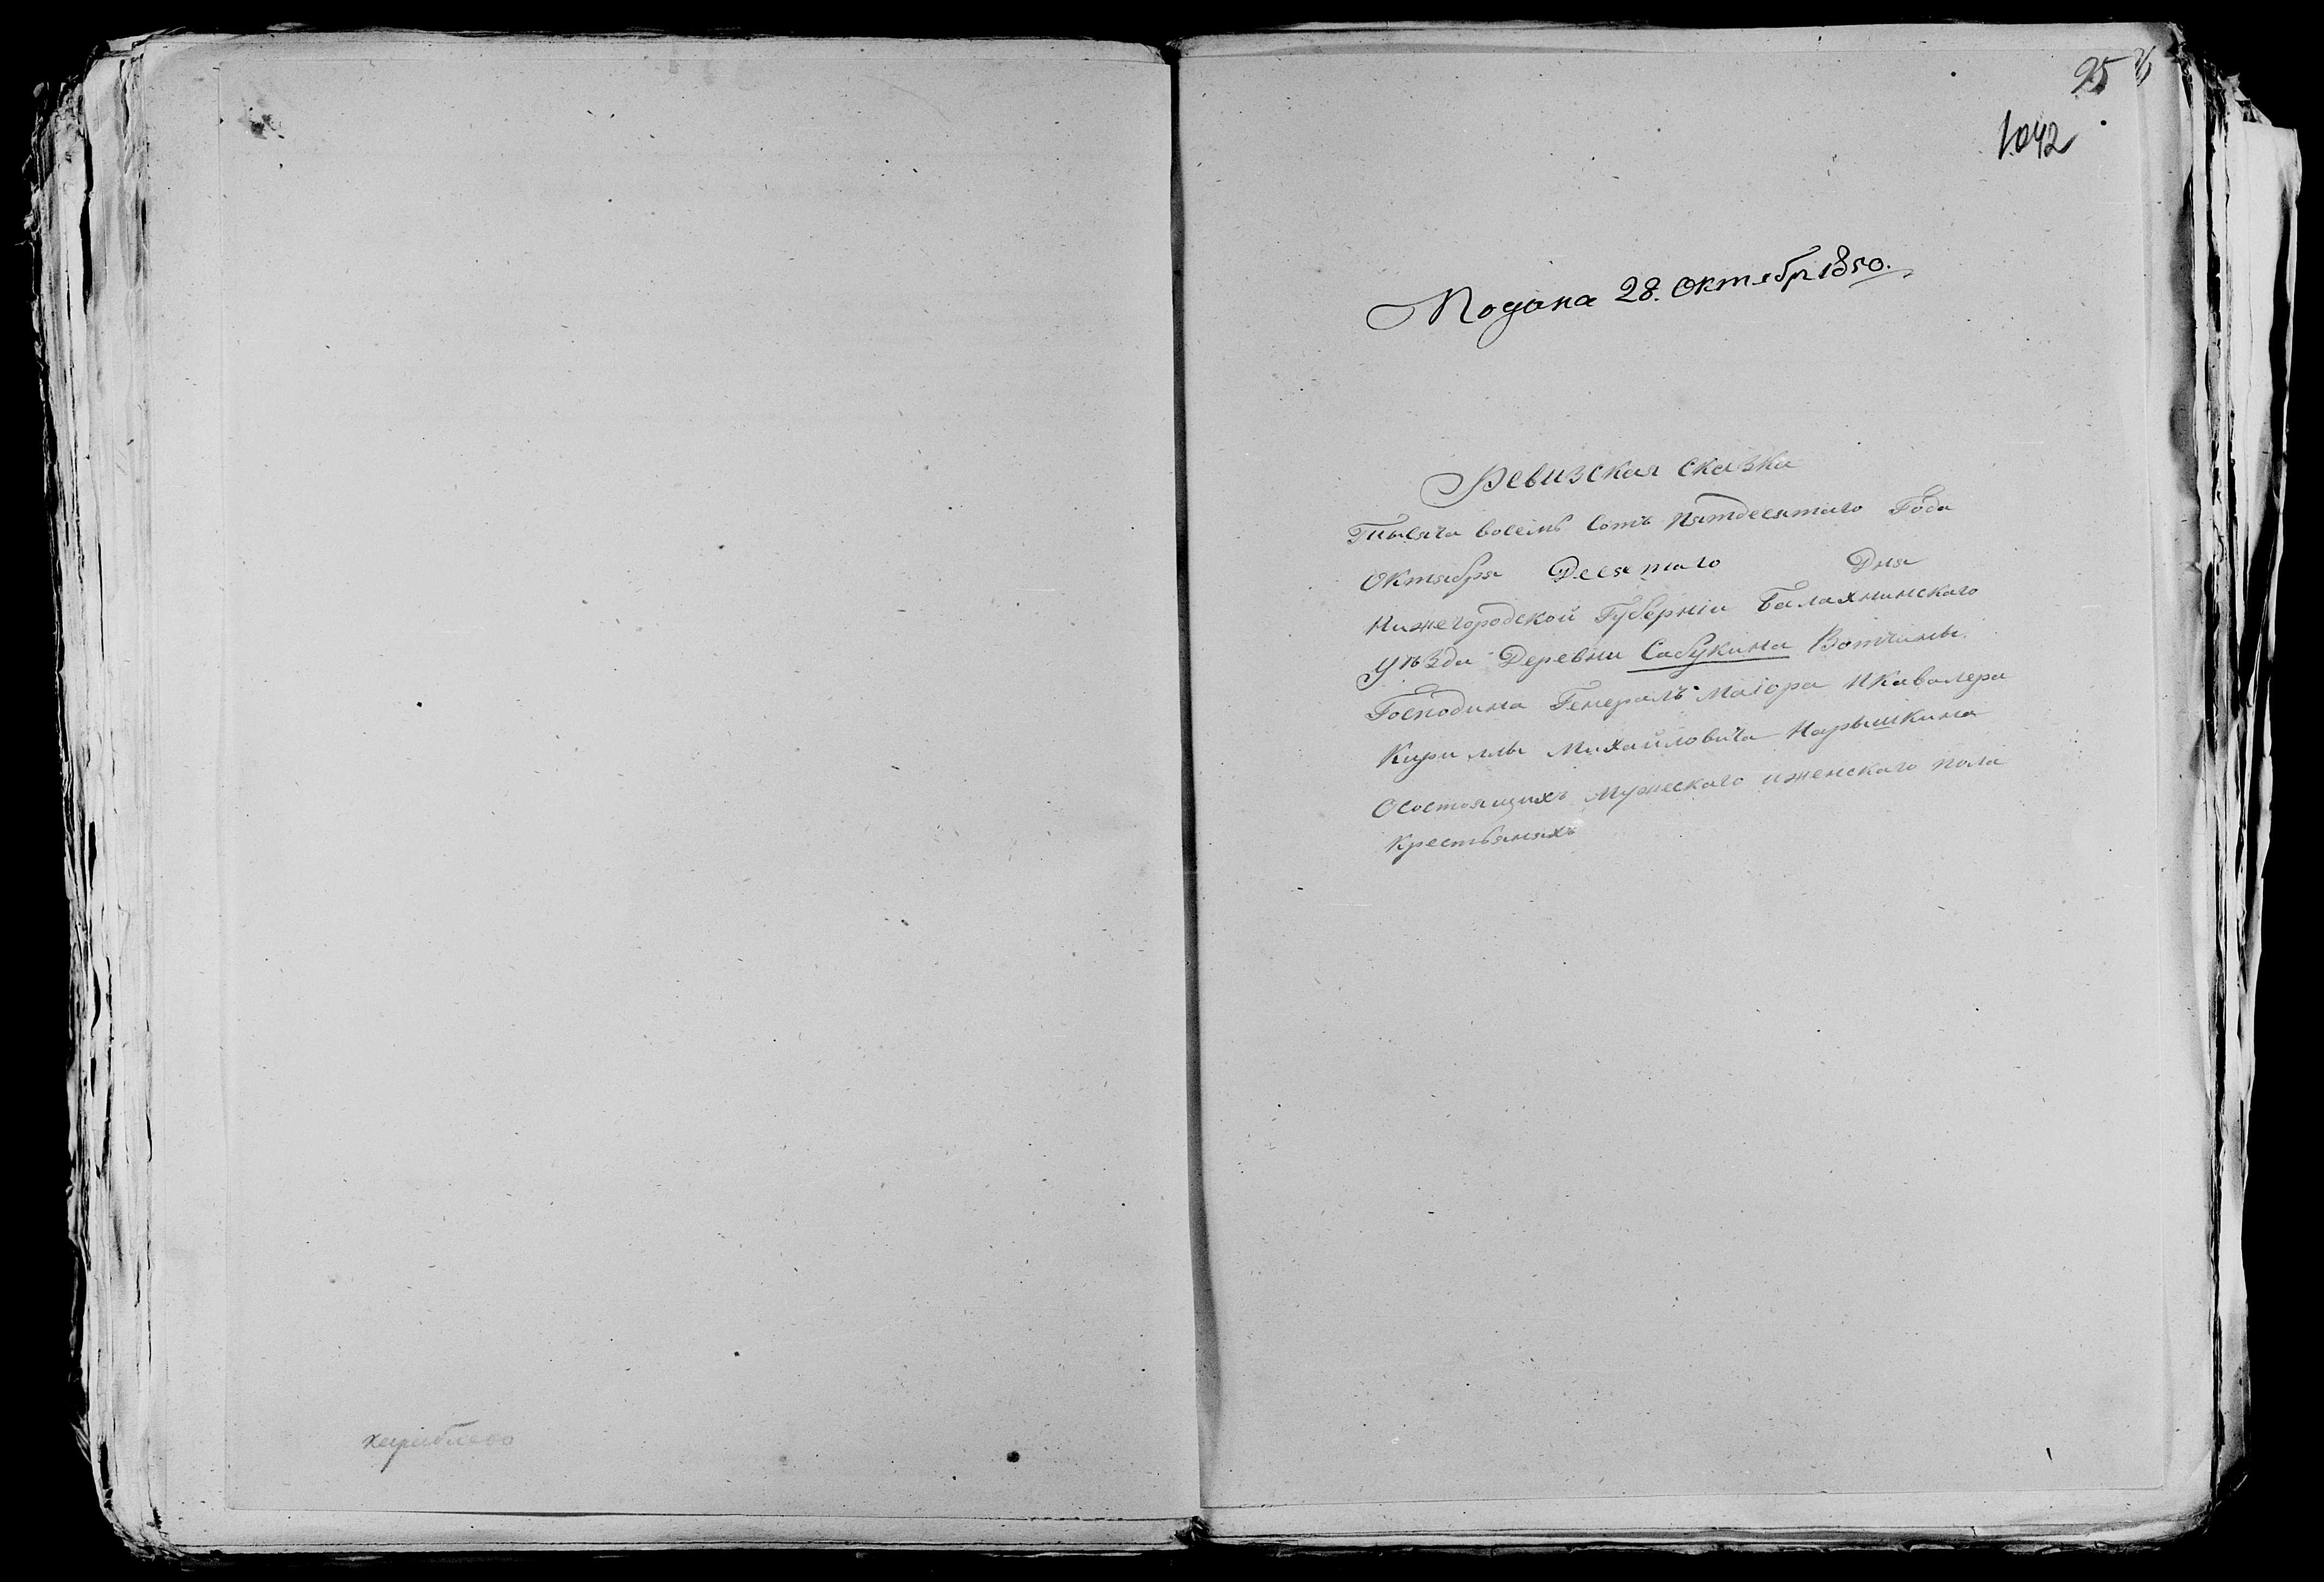 95
1042
Подана 28. Октября 1850.
Ревизская сказка
Тысяча восемь сотъ пятдесятаго Года
Октября Десятаго Дня
Нижегородской Губерніи Балахнинскаго
уѣзда Деревни Сабукина Вотчины
Господина Генералъ Маіора и Кавалера
Кириллы Михайловича Нарышкина
О состоящихъ Мужескаго и женскаго пола
Крестьянахъ